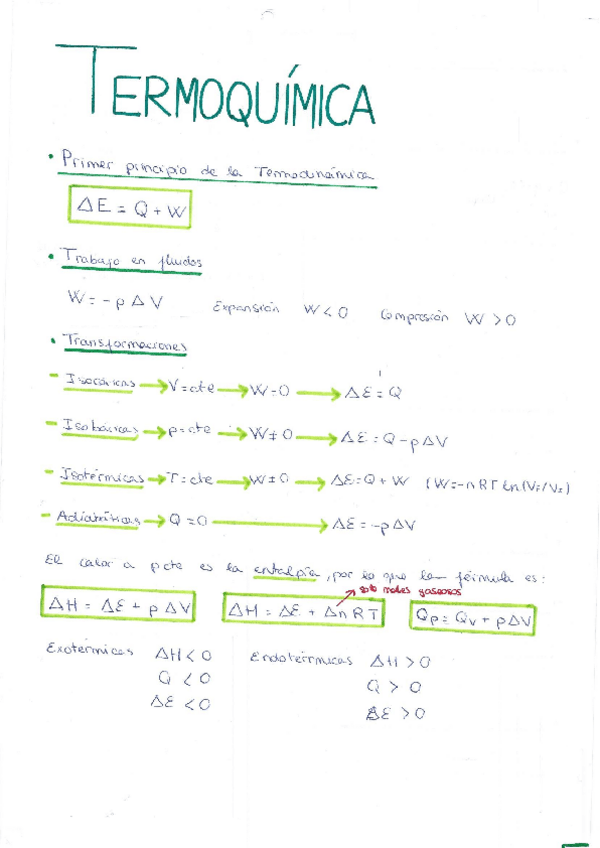 TERMOQUÍMICA
• Primer principio de la Termodinámica
ΔE = Q + W
• Trabajo en fluidos
W = -p ΔV Expansión W < 0 Compresión W > 0
• Transformaciones
- Isocóricas → V = cte → W = 0 → ΔE = Q
- Isobáricas → p = cte → W ≠ 0 → ΔE = Q - pΔV
- Isotérmicas → T = cte → W ≠ 0 → ΔE = Q + W (W = -nRT Ln(V₁/V₂)
- Adiabáticas → Q = 0 → ΔE = -pΔV
El calor a p cte es la entalpía, por lo que la fórmula es:
sólo moles gaseosos
ΔH = ΔE + pΔV ΔH = ΔE + ΔnRT Qp = Qv + pΔV
Exotérmicas ΔH < 0 Endotérmicas ΔH > 0
Q < 0 Q > 0
ΔE < 0 ΔE > 0